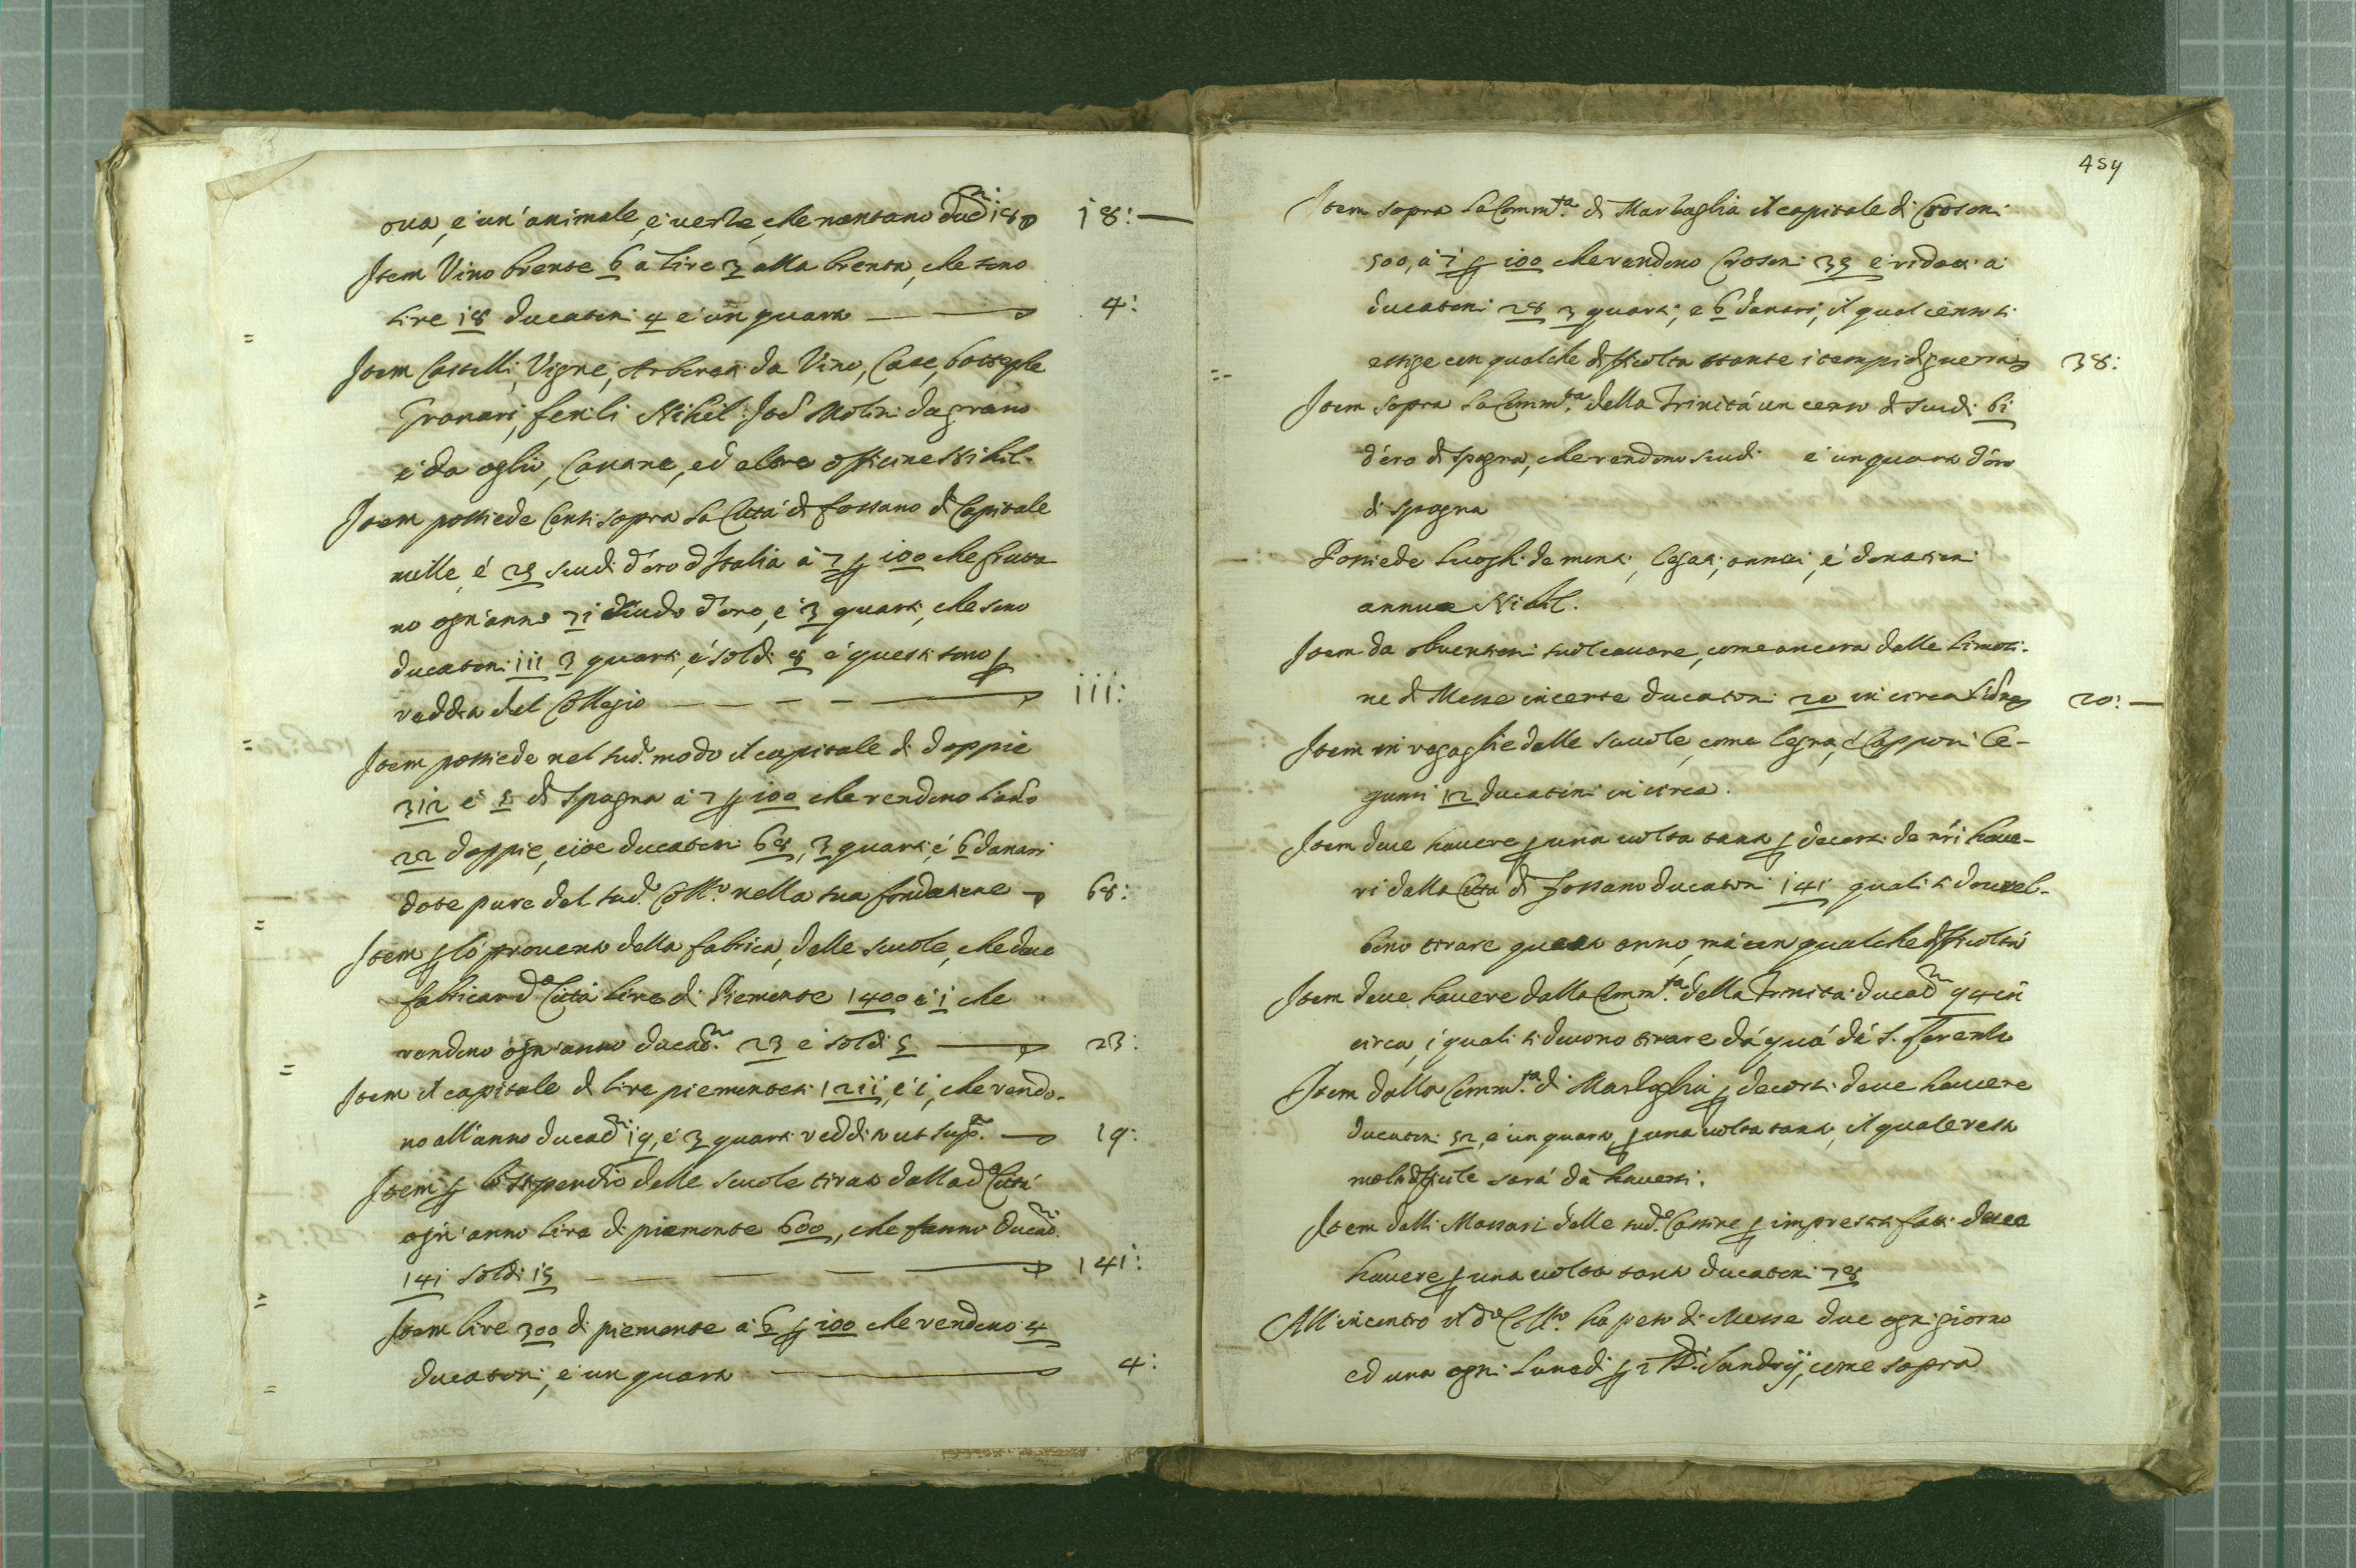 ova, e un'animale, e verze, che montano ducni 18 18:—
Item Vino brente 6 a lire 3 alla brenta, che sono
lire 18 ducatoni 4 e un quarto — 4:
Item Castelli, Vigne, Arboreti da Vino, Case, botteghe
Granari, fenili Nihil. Item Molini da grano
e da oglio, Cavane, ed altre officine Nihil.
Item possiede Censi sopra la Città di Fossano di Capitale
mille, e 25 scudi d'oro d'Italia à 7 per 100 che frutta
no ogn'anno 71 scudo d'oro, e 3 quarti, che sono
ducatoni 111 3 quarti, e soldi 8 e questi sono per
reddita del Collegio — — — — 111:
Item possiede nel sud.o modo il capitale di doppie
312 e 5 di Spagna a 7 per 100 che rendono l'anno
22 doppie, cioe ducatoni 68, 3 quarti, e 6 danari
dote pure del sud.o Coll.o nella sua fondatione 68:
Item per lo provento della fabrica, delle scuole, che deve
fabricar d.a Città lire di Piemonte 1400 e 1 che
rendono ogn'anno ducat.ni 23 e soldi 5 — 23:
Item il capitale di lire piemontesi 1211, e 1, che rendo-
no all'anno ducat.ni 19, e 3 quarti redditi ut sup.a — 19:
Item per lo stipendio delle scuole tirato dalla d.a Città
ogn'anno lire di piemonte 600, che fanno ducat.ni
141 soldi 15 — — — — 141:
Item lire 300 di piemonte à 6 per 100 che rendono 4
ducatoni, e un quarto — 4:
454
Item sopra la Comm.tà di Marsaglia il capitale di Crosoni
500, à 7 per 100 che rendono Crosoni 35 e ridotti a
ducatoni 28 3 quarti, e 6 danari, il qual censo si
essige con qualche difficolta stante i tempi di guerra 38:
Item sopra la Comm.tà della Trinità un censo di scudi 61
d'oro di Spagna, che rendono scudi e un quarto d'oro
di Spagna
Possiede luoghi de monti, legati, annui, e donationi
annue Nihil.
Item da obventioni suol cavare, come ancora dalle limosi-
ne di Messe incerte ducatoni 20 in circa l'anno 20: —
Item in regaglie delle scuole, come legna, e Capponi le-
gumi 12 ducatoni in circa.
Item deve havere per una volta tanto per decorsi de n̄ri have-
ri dalla Città di Fossano ducatoni 141 quali si dovreb-
bono tirare questo anno, ma con qualche difficoltà
Item deve havere dalla Comm.tà della Trinità ducat.ni 94 in
circa, i quali si devono tirare da quà dà S. Lorenzo
Item dalla Comm.tà di Marsaglia per decorsi deve havere
ducatoni 52, e un quarto, per una volta tanto, il quale resta
molto difficile sarà dà haversi.
Item dalli Massari delle sud.e Cassine per imprestiti fatti deve
havere per una volta tanto ducatoni 78
All'incontro il d.o Coll.o ha peso di Messe due ogni giorno
ed una ogni Lunedi per i Sandrij, come sopra